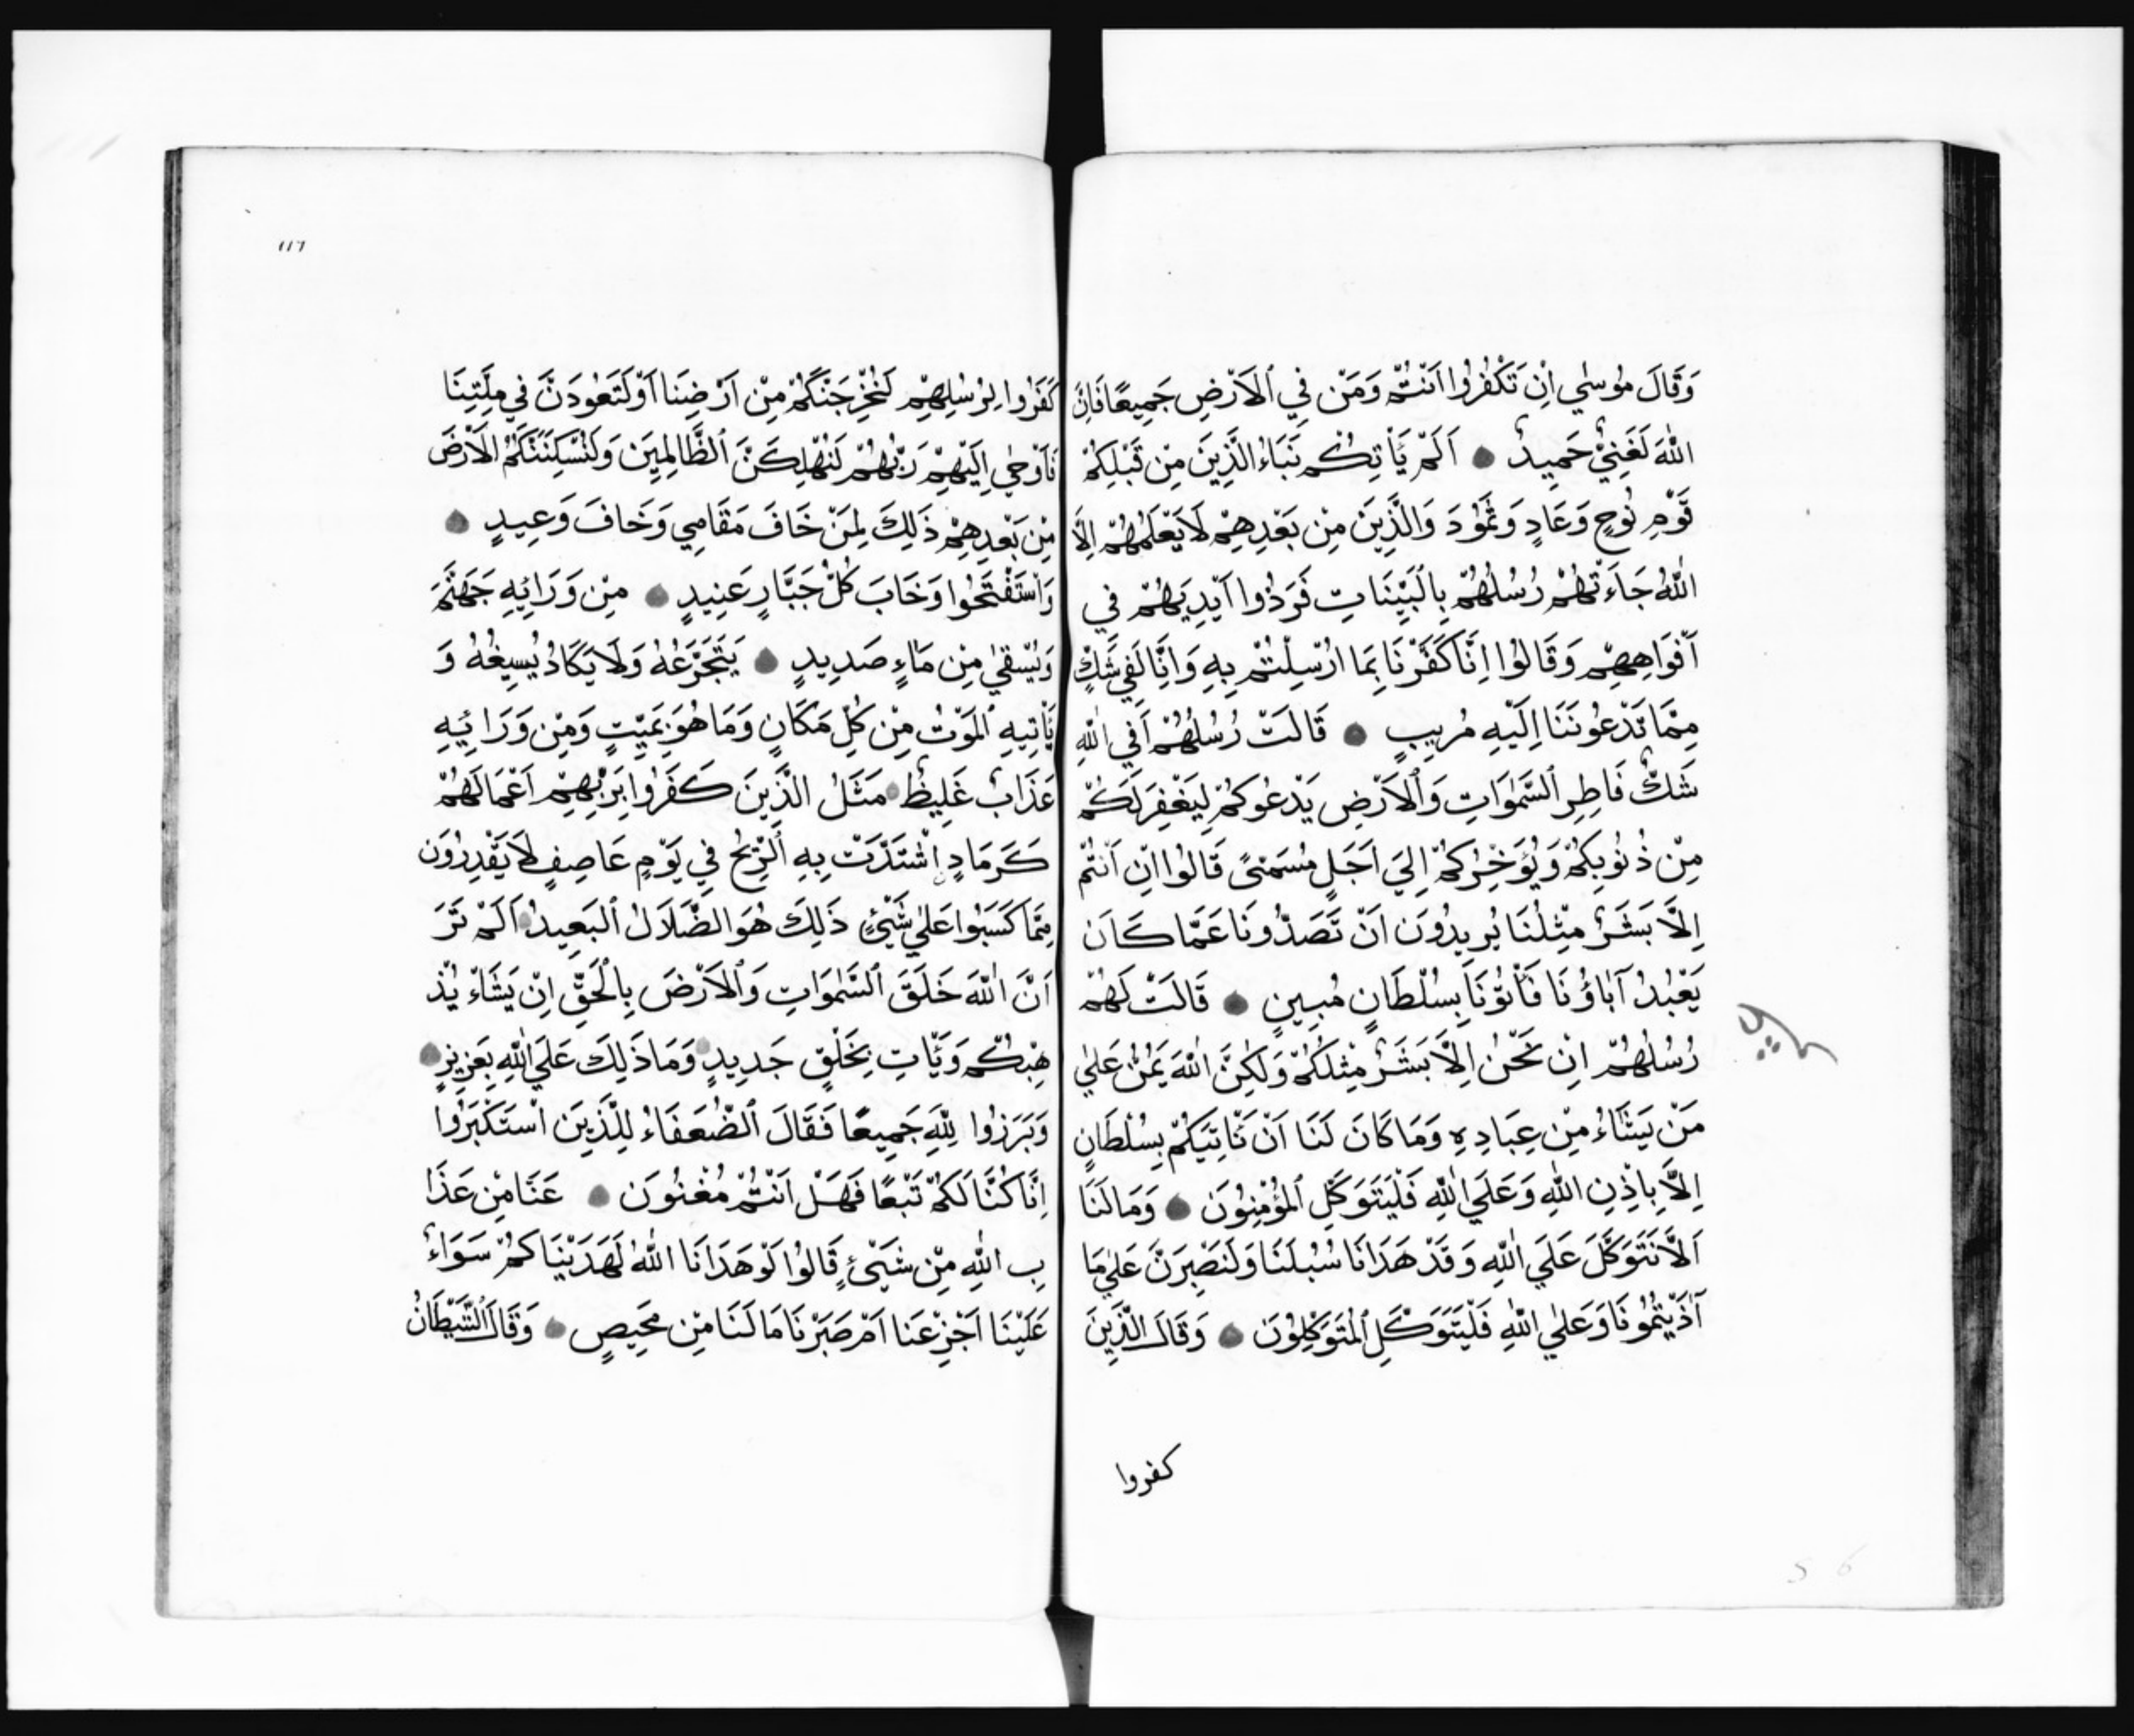 وَقَالَ مُوسٰي اِنْ تَكْفُرُوا اَنْتُمْ وَمَنْ فِي الْاَرْضِ جَمِيعًا فَاِنَّ
اللّٰهَ لَغَنِيٌّ حَمِيدٌ اَلَمْ يَأْتِكُمْ نَبَاءُ الَّذِينَ مِنْ قَبْلِكُمْ
قَوْمِ نُوحٍ وَعَادٍ وَثَمُودَ وَالَّذِينَ مِنْ بَعْدِهِمْ لَا يَعْلَمُهُمْ اِلَّا
اللّٰهُ جَاءَتْهُمْ رُسُلُهُمْ بِالْبَيِّنَاتِ فَرَدُّوا اَيْدِيَهُمْ فِي
اَفْوَاهِهِمْ وَقَالُوا اِنَّا كَفَرْنَا بِمَا اُرْسِلْتُمْ بِهِ وَاِنَّا لَفِي شَكٍّ
مِمَّا تَدْعُونَنَا اِلَيْهِ مُرِيبٍ قَالَتْ رُسُلُهُمْ اَفِي اللّٰهِ
شَكٌّ فَاطِرِ السَّمٰوَاتِ وَالْاَرْضِ يَدْعُوكُمْ لِيَغْفِرَ لَكُمْ
مِنْ ذُنُوبِكُمْ وَيُؤَخِّرَكُمْ اِلَي اَجَلٍ مُسَمًّى قَالُوا اِنْ اَنْتُمْ
اِلَّا بَشَرٌ مِثْلُنَا تُرِيدُونَ اَنْ تَصُدُّونَا عَمَّا كَانَ
يَعْبُدُ آبَاؤُنَا فَأْتُونَا بِسُلْطَانٍ مُبِينٍ قَالَتْ لَهُمْ
رُسُلُهُمْ اِنْ نَحْنُ اِلَّا بَشَرٌ مِثْلُكُمْ وَلٰكِنَّ اللّٰهَ يَمُنُّ عَلٰي
مَنْ يَشَاءُ مِنْ عِبَادِهِ وَمَا كَانَ لَنَا اَنْ نَاْتِيَكُمْ بِسُلْطَانٍ
اِلَّا بِاِذْنِ اللّٰهِ وَعَلَي اللّٰهِ فَلْيَتَوَكَّلِ الْمُؤْمِنُونَ وَمَا لَنَا
اَلَّا نَتَوَكَّلَ عَلَي اللّٰهِ وَقَدْ هَدَانَا سُبُلَنَا وَلَنَصْبِرَنَّ عَلٰي مَا
آذَيْتُمُونَا وَعَلٰي اللّٰهِ فَلْيَتَوَكَّلِ الْمُتَوَكِّلُونَ وَقَالَ الَّذِينَ
كفروا
١١٦
كَفَرُوا لِرُسُلِهِمْ لَنُخْرِجَنَّكُمْ مِنْ اَرْضِنَا اَوْ لَتَعُودَنَّ فِي مِلَّتِنَا
فَاَوْحٰي اِلَيْهِمْ رَبُّهُمْ لَنُهْلِكَنَّ الظَّالِمِينَ وَلَنُسْكِنَنَّكُمُ الْاَرْضَ
مِنْ بَعْدِهِمْ ذَلِكَ لِمَنْ خَافَ مَقَامِي وَخَافَ وَعِيدٍ
وَاسْتَفْتَحُوا وَخَابَ كُلُّ جَبَّارٍ عَنِيدٍ مِنْ وَرَائِهِ جَهَنَّمُ
وَيُسْقٰي مِنْ مَاءٍ صَدِيدٍ يَتَجَرَّعُهُ وَلَا يَكَادُ يُسِيغُهُ وَ
يَأْتِيهِ الْمَوْتُ مِنْ كُلِّ مَكَانٍ وَمَا هُوَ بِمَيِّتٍ وَمِنْ وَرَائِهِ
عَذَابٌ غَلِيظٌ مَثَلُ الَّذِينَ كَفَرُوا بِرَبِّهِمْ اَعْمَالُهُمْ
كَرَمَادٍ اِشْتَدَّتْ بِهِ الرِّيحُ فِي يَوْمٍ عَاصِفٍ لَا يَقْدِرُونَ
مِمَّا كَسَبُوا عَلٰي شَيْئٍ ذَلِكَ هُوَ الضَّلَالُ الْبَعِيدُ اَلَمْ تَرَ
اَنَّ اللّٰهَ خَلَقَ السَّمٰوَاتِ وَالْاَرْضَ بِالْحَقِّ اِنْ يَشَاْءْ يُذْ
هِبْكُمْ وَيَأْتِ بِخَلْقٍ جَدِيدٍ وَمَا ذَلِكَ عَلَي اللّٰهِ بِعَزِيزٍ
وَبَرَزُوا لِلّٰهِ جَمِيعًا فَقَالَ الضُّعَفَاءُ لِلَّذِينَ اسْتَكْبَرُوا
اِنَّا كُنَّا لَكُمْ تَبَعًا فَهَلْ اَنْتُمْ مُغْنُونَ عَنَّا مِنْ عَذَا
بِ اللّٰهِ مِنْ شَيْئٍ قَالُوا لَوْ هَدَانَا اللّٰهُ لَهَدَيْنَاكُمْ سَوَاءٌ
عَلَيْنَا اَجَزِعْنَا اَمْ صَبَرْنَا مَا لَنَا مِنْ مَحِيصٍ وَقَالَ الشَّيْطَانُ